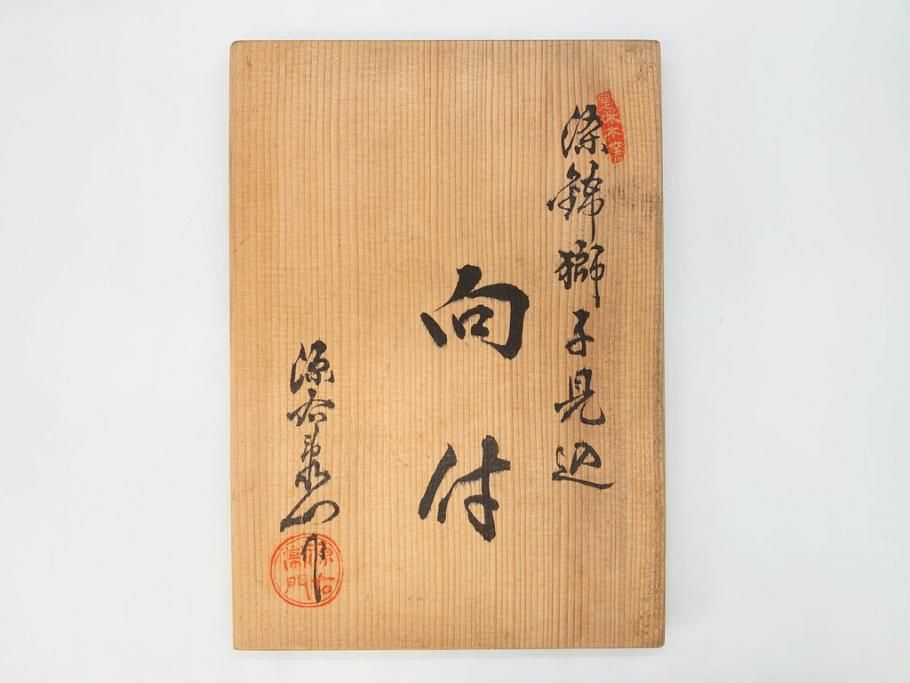 染錦獅子見込
向付
源右泉山作
源右衛門